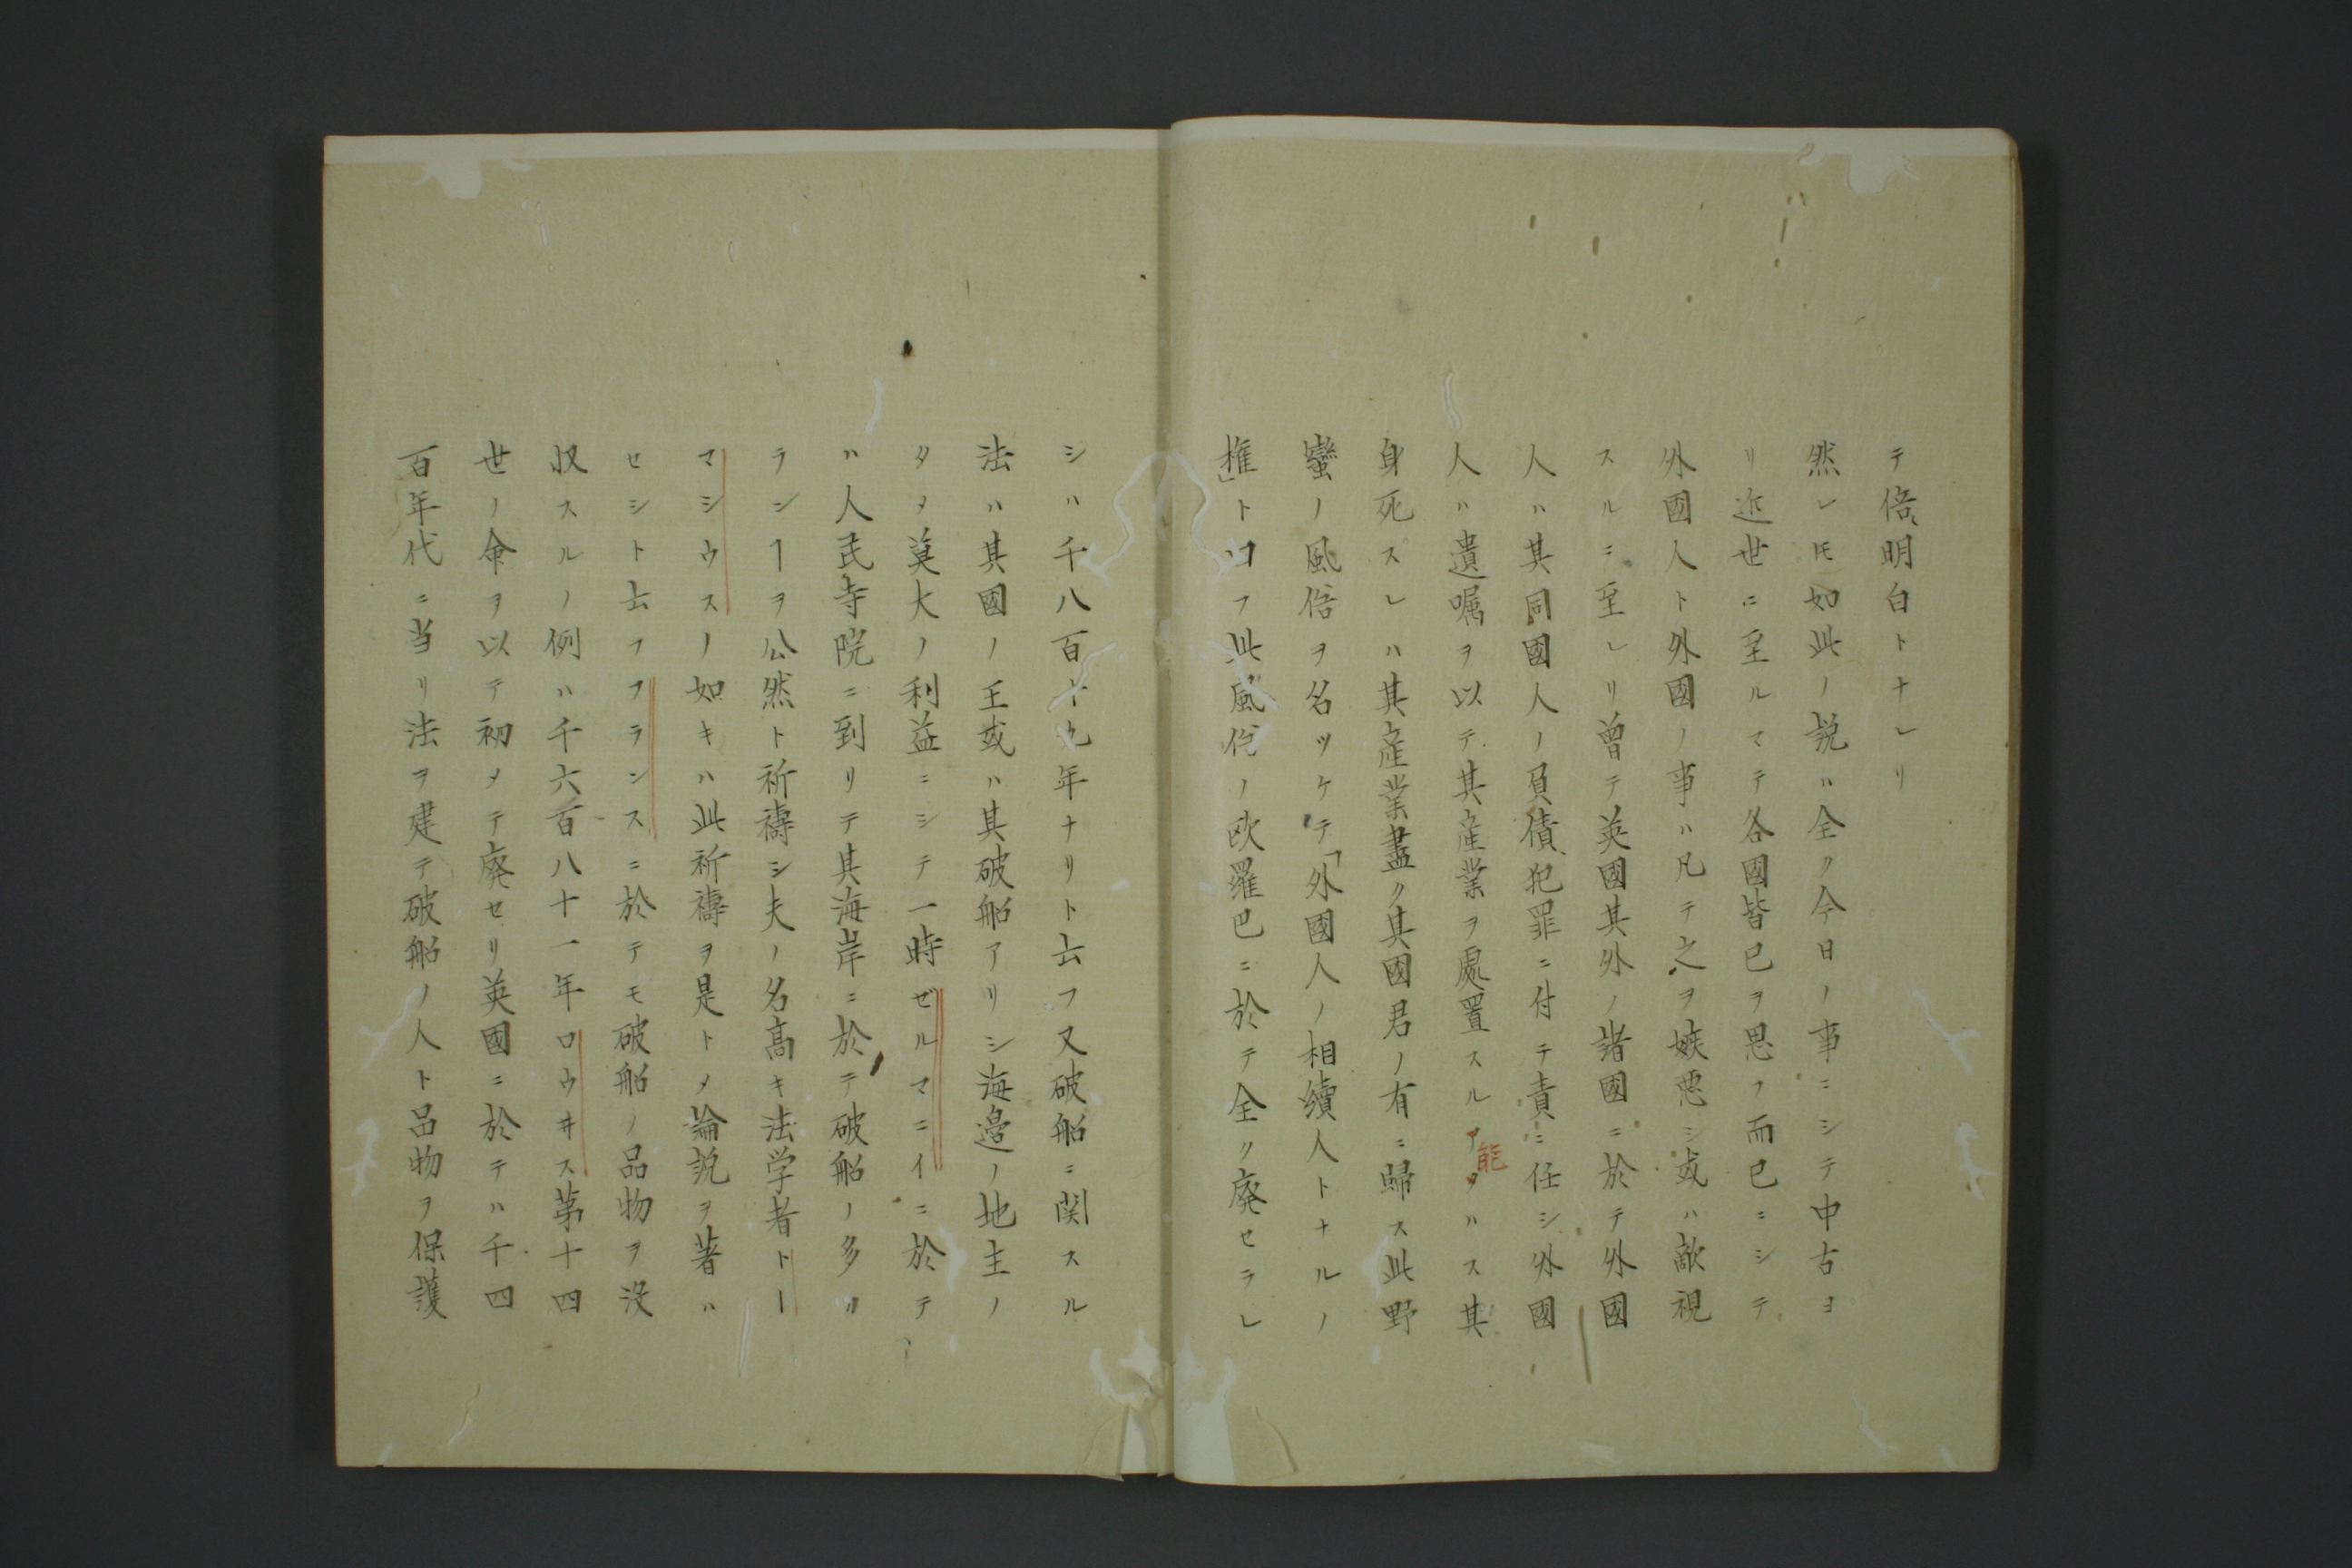 テ倍明白トナレリ
然レ𪜈如此ノ説ハ全ク今日ノ事ニシテ中古ヨ
リ近世ニ至ルマテ各國皆已ヲ思フ而已ニシテ
外國人ト外國ノ事ハ凡テ之ヲ嫉悪シ或ハ敵視
スルニ至レリ曽テ英國其外ノ諸國ニ於テ外國
人ハ其同國人ノ負債犯罪ニ付テ責ニ任シ外國
人ハ遺嘱ヲ以テ其産業ヲ處置スルヿ能ハス其
身死スレハ其産業盡ク其國君ノ有ニ歸ス此野
蠻ノ風俗ヲ名ツケテ「外國人ノ相續人トナルノ
権」ト曰フ此風俗ノ欧羅巴ニ於テ全ク廃セラレ
シハ千八百十九年ナリト云フ又破船ニ関スル
法ハ其國ノ王或ハ其破船アリシ海邉ノ地主ノ
タメ莫大ノ利益ニシテ一時ゼルマニイニ於テ
ハ人民寺院ニ到リテ其海岸ニ於テ破船ノ多カ
ランヿヲ公然ト祈禱シ夫ノ名高キ法学者トー
マシウスノ如キハ此祈禱ヲ是トメ論説ヲ著ハ
セシト云フフランスニ於テモ破船ノ品物ヲ没
収スルノ例ハ千六百八十一年ロウヰス第十四
世ノ命ヲ以テ初メテ廃セリ英國ニ於テハ千四
百年代ニ当リ法ヲ建テ破船ノ人ト品物ヲ保護